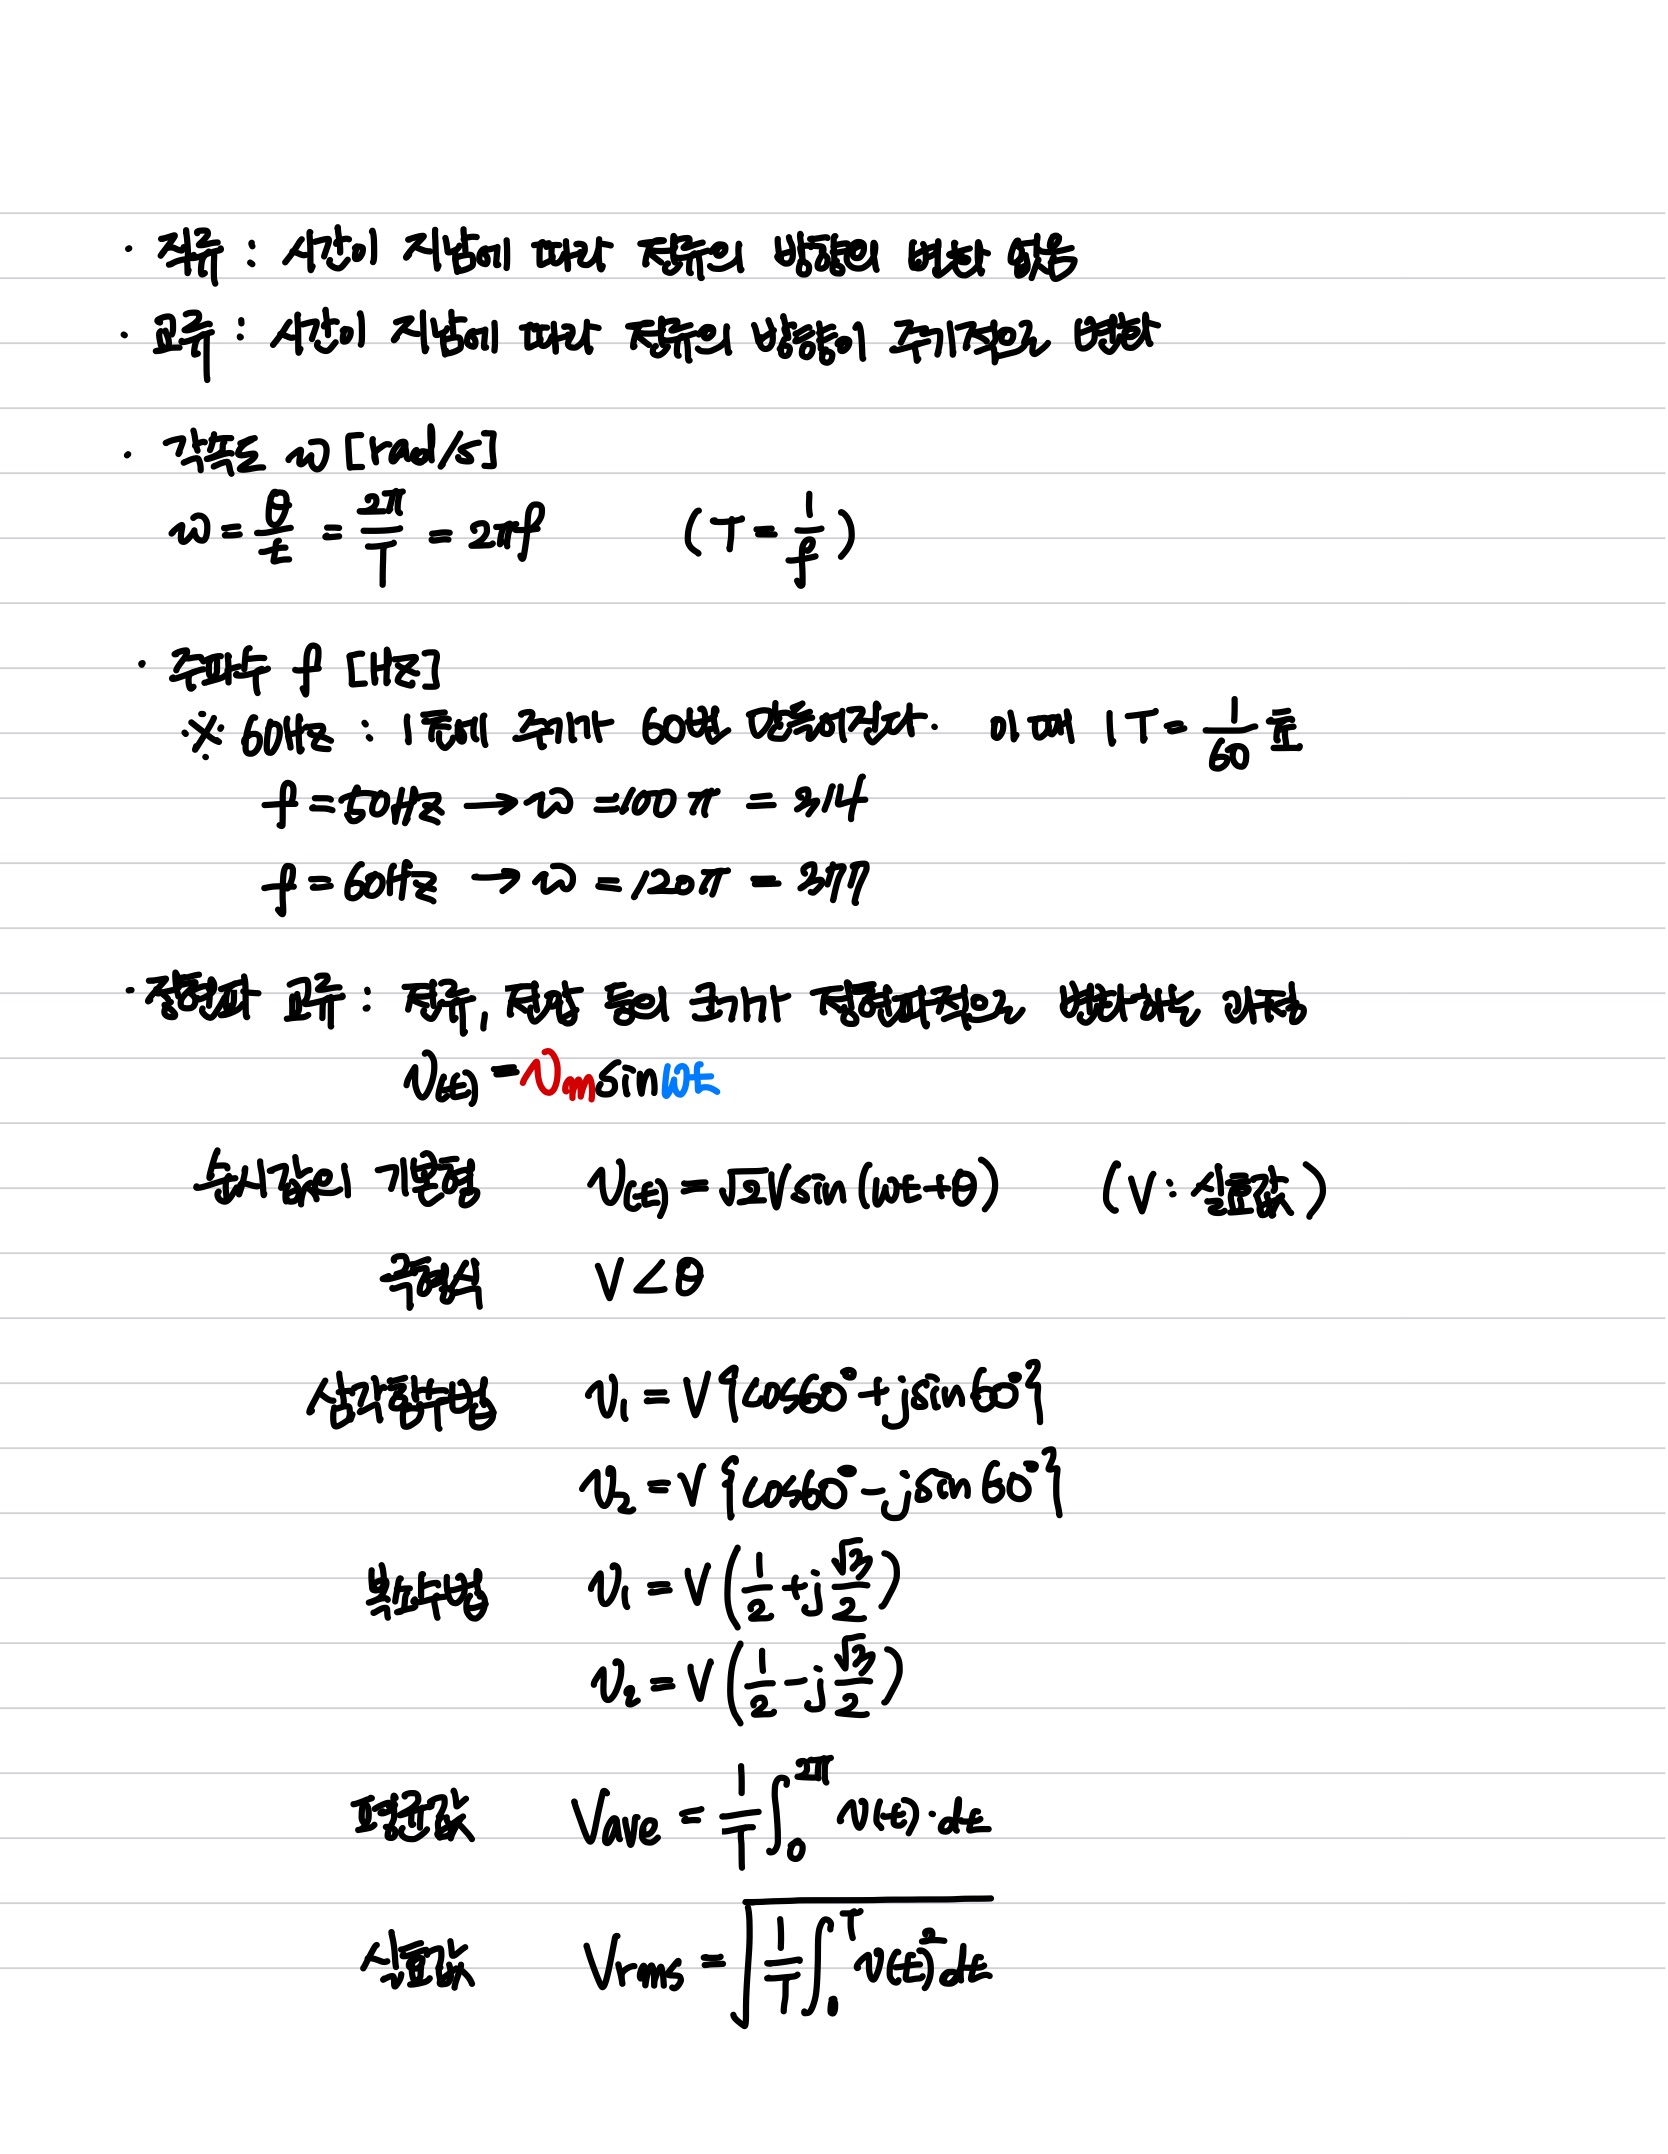 · 직류 : 시간이 지남에 따라 전류의 방향의 변화 없음
· 교류 : 시간이 지남에 따라 전류의 방향이 주기적으로 변화
· 각속도 ω [rad/s]
ω = θ/t = 2π/T = 2πf (T = 1/f)
· 주파수 f [Hz]
※ 60Hz : 1초에 주기가 60번 만들어진다. 이 때 1T = 1/60 초
f = 50Hz → ω = 100π = 314
f = 60Hz → ω = 120π = 377
· 정현파 교류 : 전류, 전압 등의 크기가 정현파적으로 변화하는 과정
v(t) = Vm sin ωt
순시값의 기본형 v(t) = √2 V sin (ωt + θ) (V : 실효값)
극형식 V∠θ
삼각함수법 v₁ = V {cos60° + jsin60°}
v₂ = V {cos60° - jsin60°}
복소수법 v₁ = V (1/2 + j √3/2)
v₂ = V (1/2 - j √3/2)
평균값 Vave = 1/T ∫₀^2π v(t)·dt
실효값 Vrms = √(1/T ∫₀^T v(t)² dt)